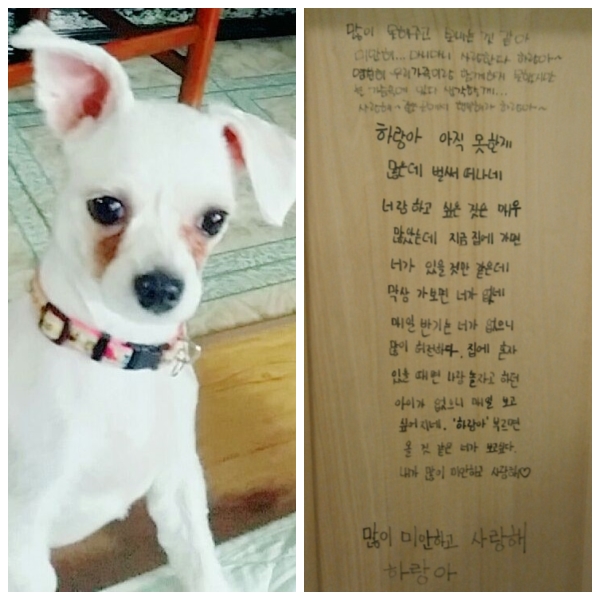 많이 못해주고 보내는 것 같아
미안해... 다시다시 사랑한다 하랑아~
우리가족이랑 함께하지 못하지만
사랑해~ 하랑아~
하랑아 아직 못한게
많은데 벌써 떠나네
너랑 하고 싶은 것은 매우
많았는데 지금 집에 가면
너가 있을 것만 같은데
막상 가보면 너가 없네
매일 반기는 너가 없으니
많이 허전하다. 집에 혼자
있을 때면 나랑 놀자고 하던
아이가 없으니 매일 보고
싶어지네. '하랑아' 부르면
올 것 같은 너가 보고싶다.
내가 많이 미안하고 사랑해♡
많이 미안하고 사랑해
하랑아